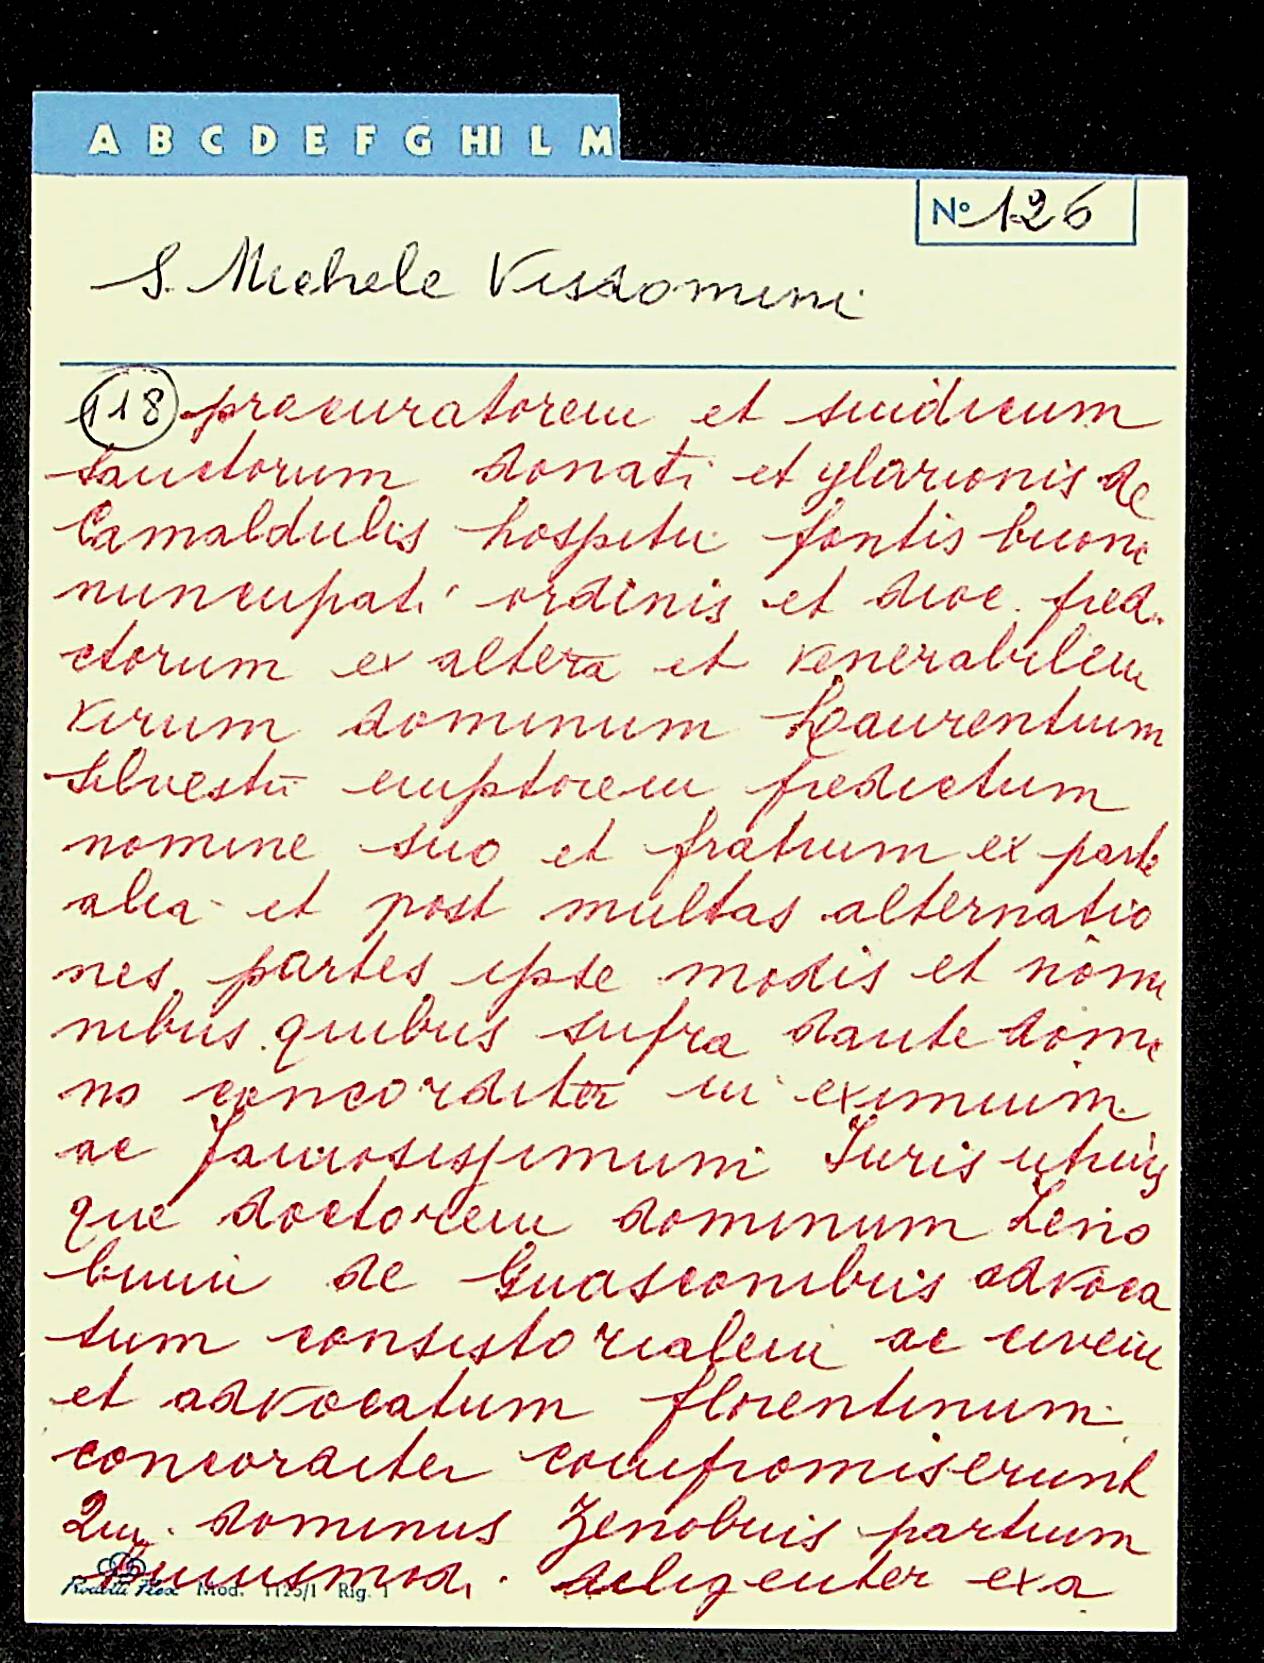 A B C D E F G HI L M
Nº 126
S. Michele Visdomini
118 procuratorem et sindicum
Sanctorum donati et ylarionis de
Camaldulis hospitii fontis buoni
nuncupati ordinis et dioc. pred.
ctorum ex altera et venerabilem
virum dominum Laurentium
Silvestri emptorem predictum
nomine suo et fratrum ex parte
alia et post multas alternatio
nes partes ipse modis et nomi
nibus quibus supra dante domi
no concorditer in eximium
ac famosissimum Iuris utrius
que doctorem dominum Zeno
bium de Guasconibus advoca
tum consistorialem ac civem
et advocatum florentinum
concorditer compromiserunt
Qui dominus Zenobius partium
huiusmodi diligenter exa
Mod. 1125/1 Rig. 1